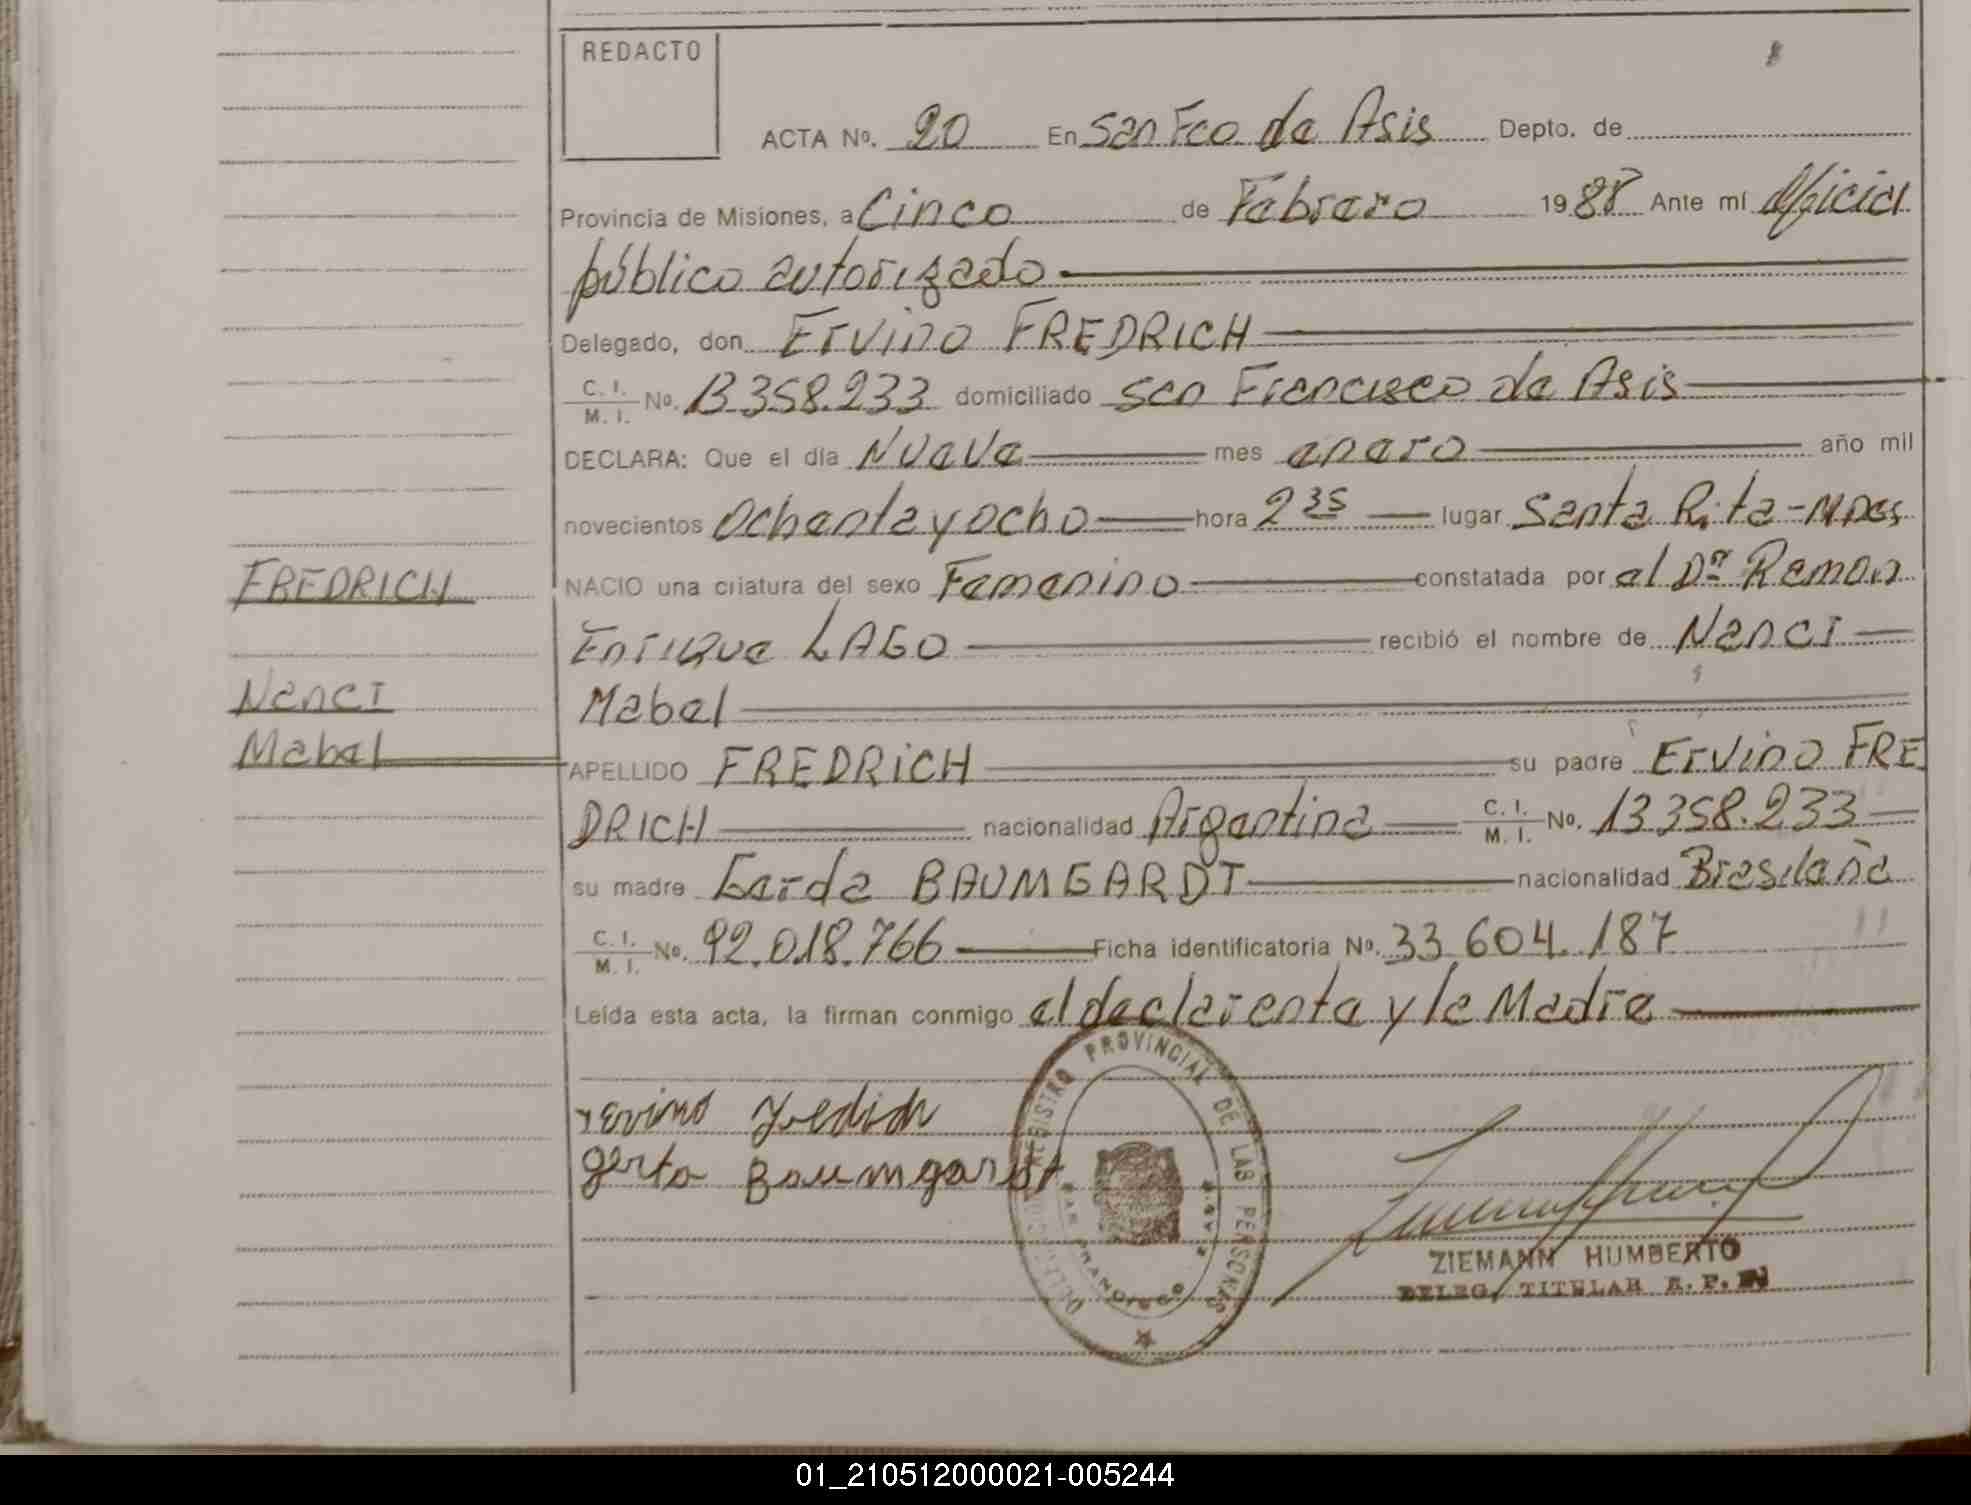 REDACTO
ACTA No. 20 En San Fco. de Asis Depto. de
Provincia de Misiones, a Cinco de Febrero 1988 Ante mí Oficial
público autorizado
Delegado, don Ervino FREDRICH
C. I. / M. I. No. 13.358.233 domiciliado San Francisco de Asis
DECLARA: Que el día Nueve mes enero año mil
novecientos Ochenta y ocho hora 2 35 lugar Santa Rita - Mnes
FREDRICH
NACIO una criatura del sexo Femenino constatada por el Dr Ramon
Enrique LAGO recibió el nombre de Nanci
Nanci
Mabel
Mabel
APELLIDO FREDRICH su padre Ervino FRE
DRICH nacionalidad Argentina C. I. / M. I. No. 13.358.233
su madre Gerda BAUMGARDT nacionalidad Brasileña
C. I. / M. I. No. 92.018.766 Ficha identificatoria No. 33.604.187
Leída esta acta, la firman conmigo el declarante y la Madre
Fredich
gerta Baumgardt
REGISTRO PROVINCIAL DE LAS PERSONAS
SAN FRANCISCO ASIS
ZIEMANN HUMBERTO
DELEG. TITULAR
01_210512000021-005244